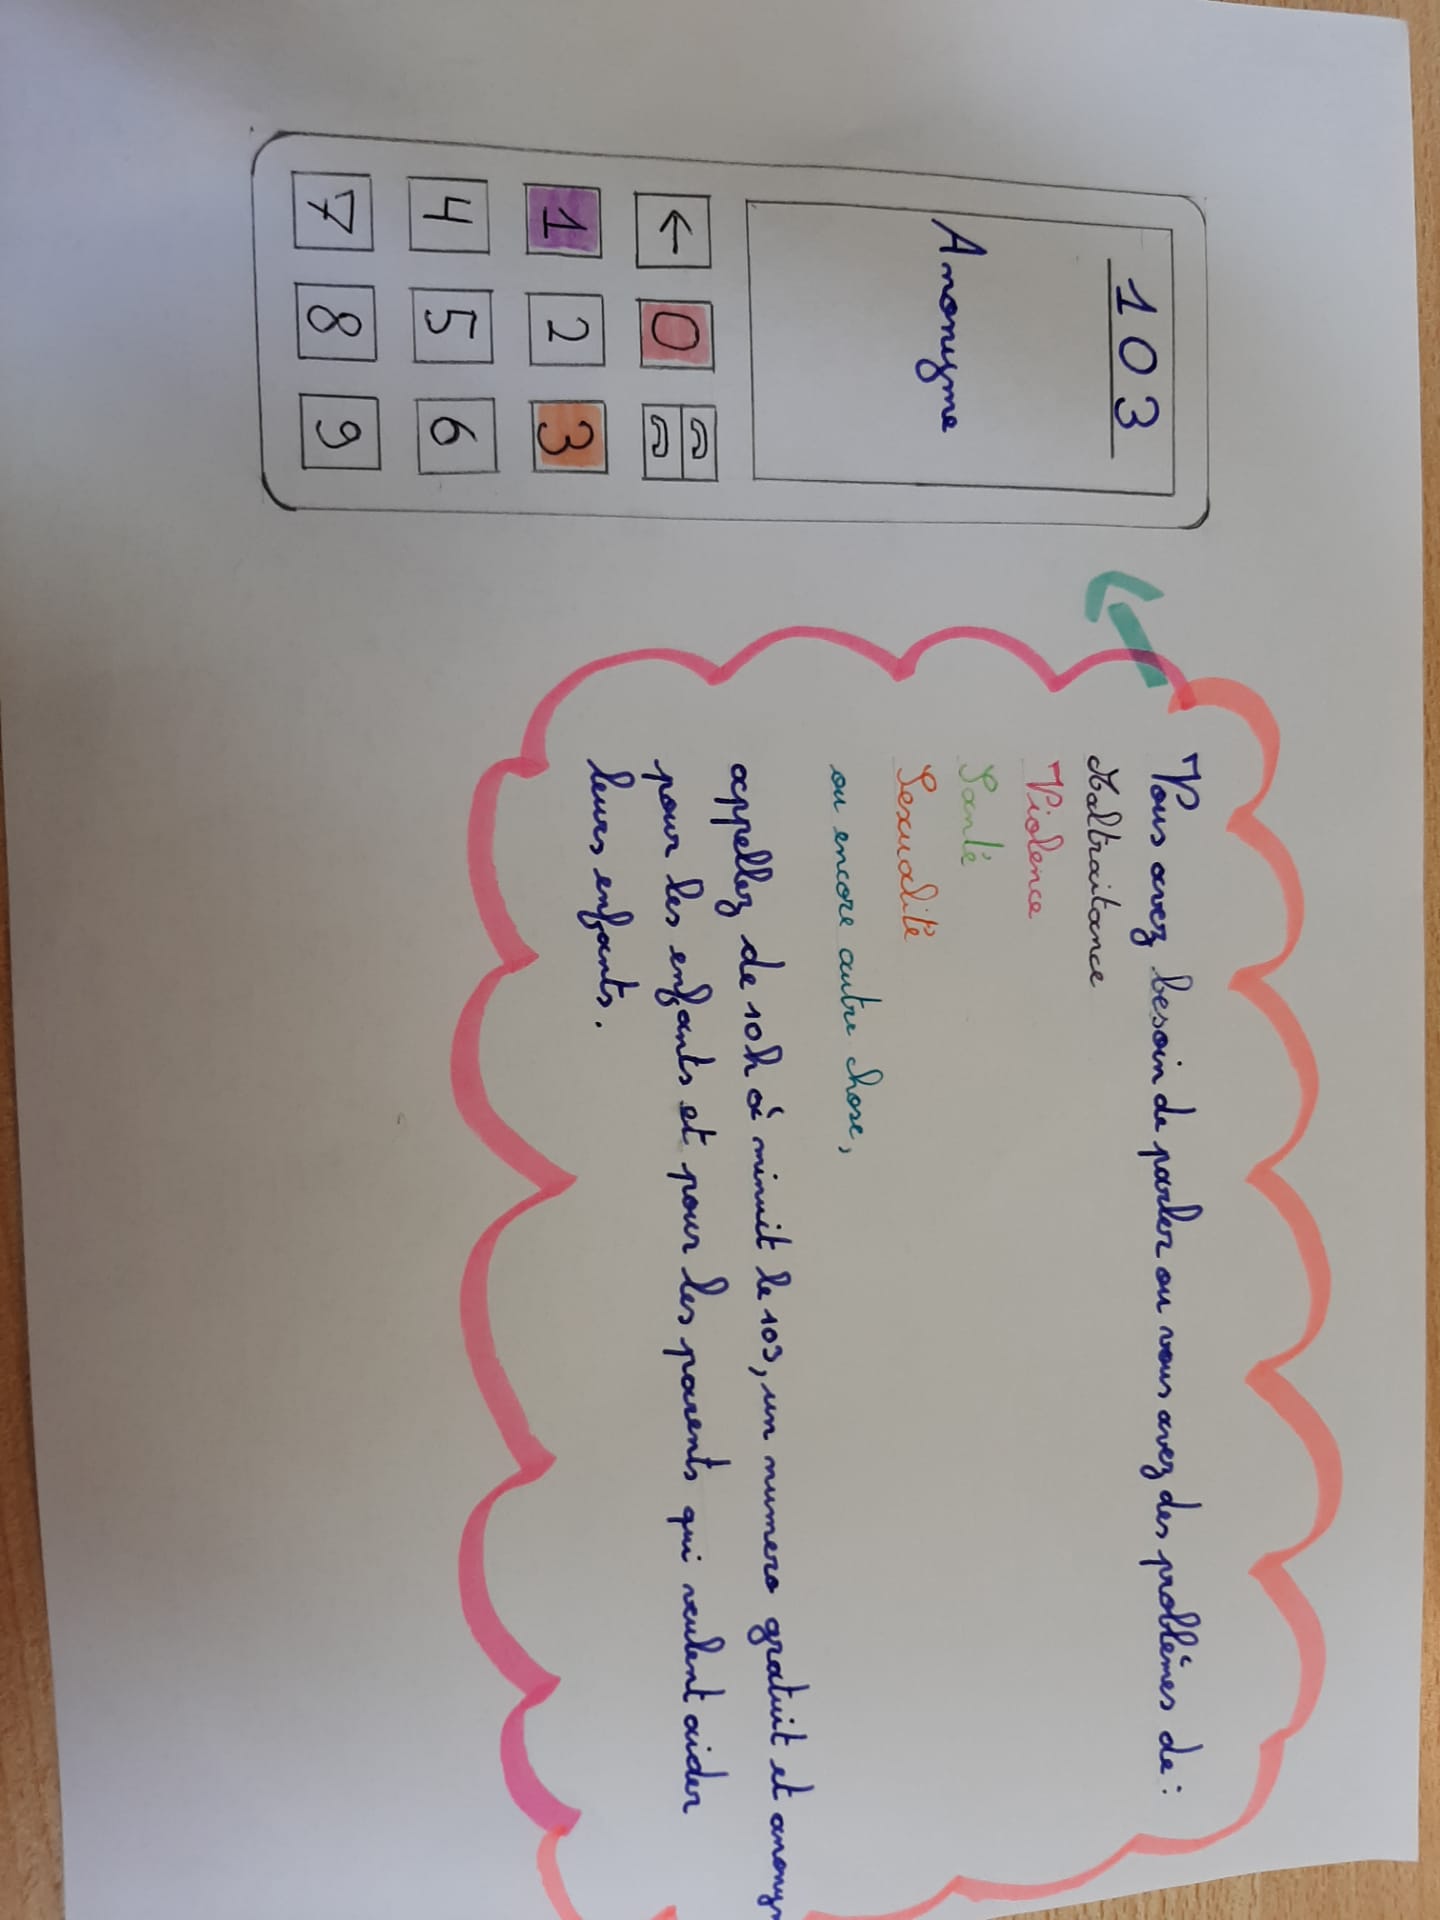 103
Anonyme
← 0
1 2 3
4 5 6
7 8 9
Vous avez besoin de parler ou vous avez des problèmes de :
Maltraitance
Violence
Santé
Sexualité
ou encore autre chose,
appellez de 10h à minuit le 103, un numero gratuit et anonym
pour les enfants et pour les parents qui veulent aider
leurs enfants.